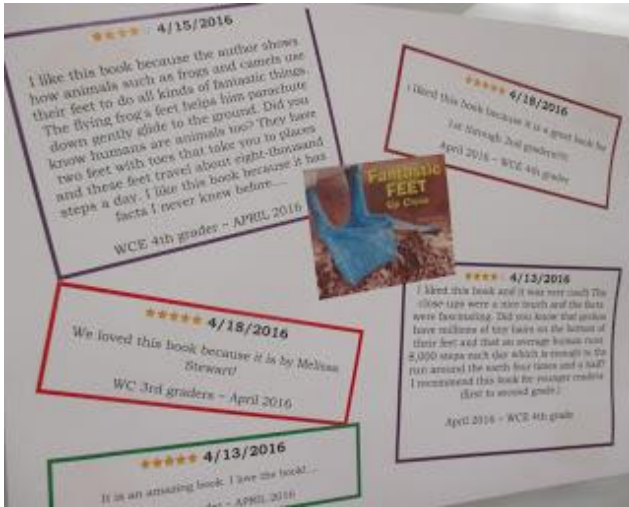 4/15/2016
I like this book because the author shows
how animals such as frogs and camels use
their feet to do all kinds of fantastic things.
The flying frog's feet helps him parachute
down gently glide to the ground. Did you
know humans are animals too? They have
two feet with toes that take you to places
and these feet travel about eight-thousand
steps a day. I like this book because it has
facts I never knew before....
WCE 4th grader - APRIL 2016
4/18/2016
I liked this book because it is a great book for
1st through 2nd graders!!!!
April 2016 - WCE 4th grader
Fantastic
FEET
Up Close
4/18/2016
We loved this book because it is by Melissa
Stewart!
WC 3rd graders - April 2016
4/13/2016
I liked this book and it was very cool! The
close ups were a nice touch and the facts
were fascinating. Did you know that geckos
have millions of tiny hairs on the bottom of
their feet and that an average human runs
8,000 steps each day which is enough to the
run around the earth four times and a half?
I recommend this book for younger readers
(first to second grade.)
April 2016 - WCE 4th grade
4/13/2016
It is an amazing book. I love the book!....
- APRIL 2016